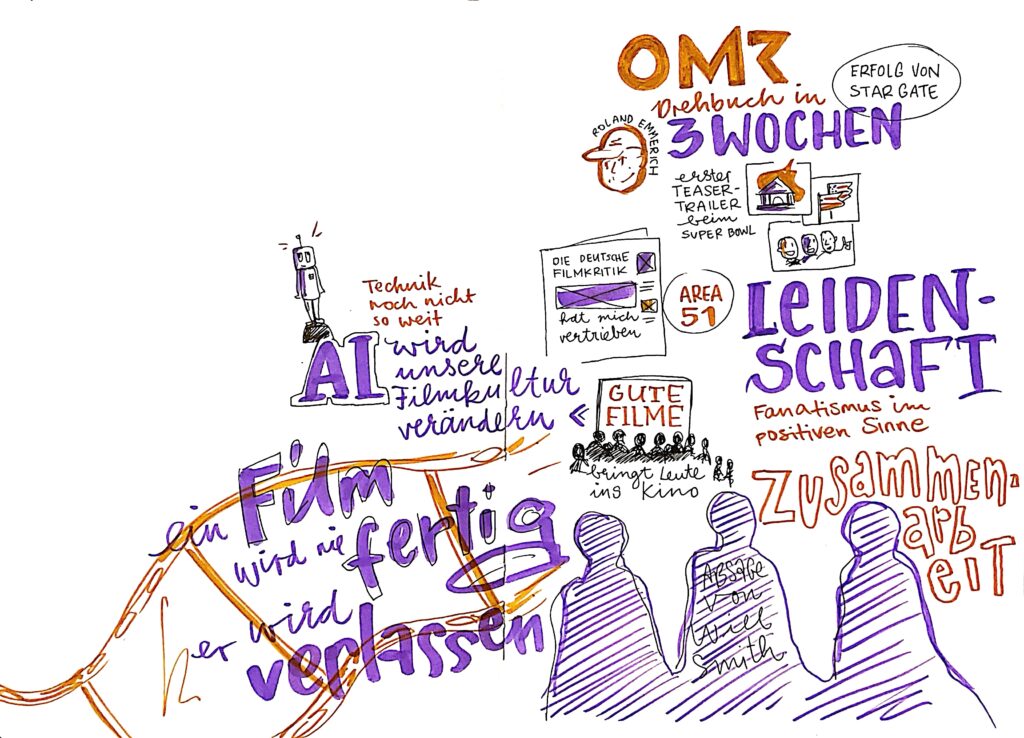 OMR
ERFOLG VON
STAR GATE
Drehbuch in
3 WOCHEN
ROLAND EMMERICH
erster
TEASER-
TRAILER
beim
SUPER BOWL
DIE DEUTSCHE
FILMKRITIK
hat mich
vertrieben
AREA
51
LEIDEN-
SCHAFT
Fanatismus im
positiven Sinne
Technik
noch nicht
so weit
AI wird
unsere
Filmkultur
verändern
GUTE
FILME
bringt Leute
ins Kino
ZUSammen-
arb
eiT
ABSAGE
von
Will
Smith
ein Film
wird nie fertig
er wird
verlassen